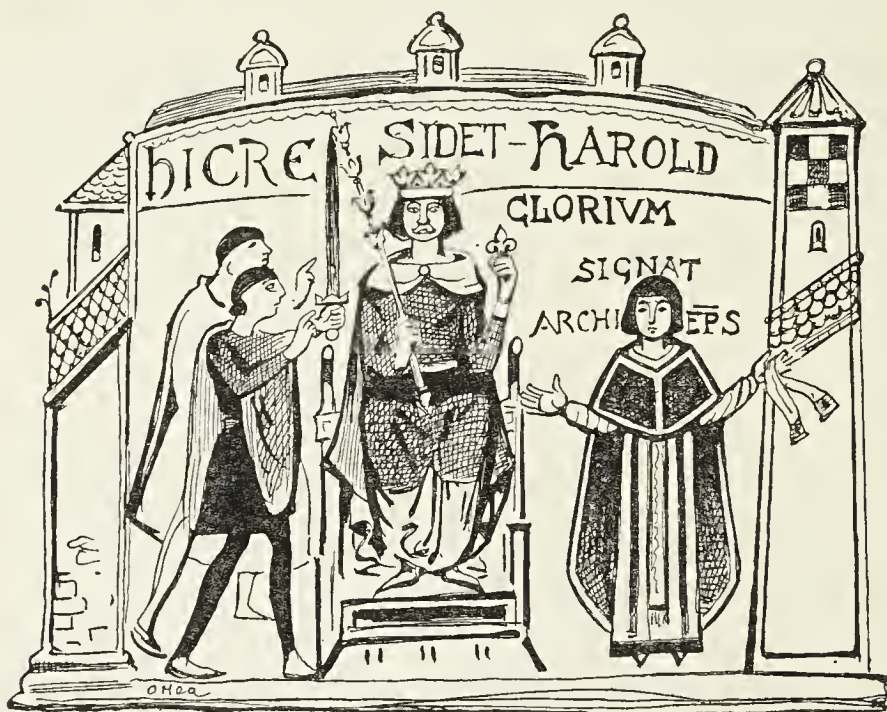 hICRE SIDET-hAROLD
GLORIVM
SIGNAT
ARCHI E̅P̅S
OHea